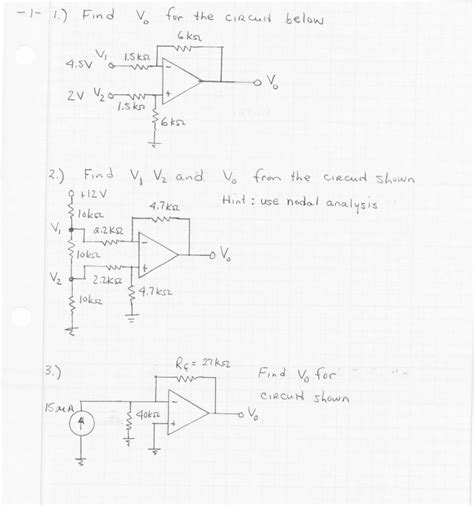 -1- 1.) Find Vo for the circuit below
6kΩ
V1 1.5kΩ
4.5V
2V V2
1.5kΩ
Vo
6kΩ
2.) Find V1 V2 and Vo from the circuit shown
Hint: use nodal analysis
+12V
10kΩ
4.7kΩ
V1 2.2kΩ
10kΩ
Vo
V2
2.2kΩ
4.7kΩ
10kΩ
3.) Rf = 27kΩ
Find Vo for
circuit shown
15μA
40kΩ
Vo